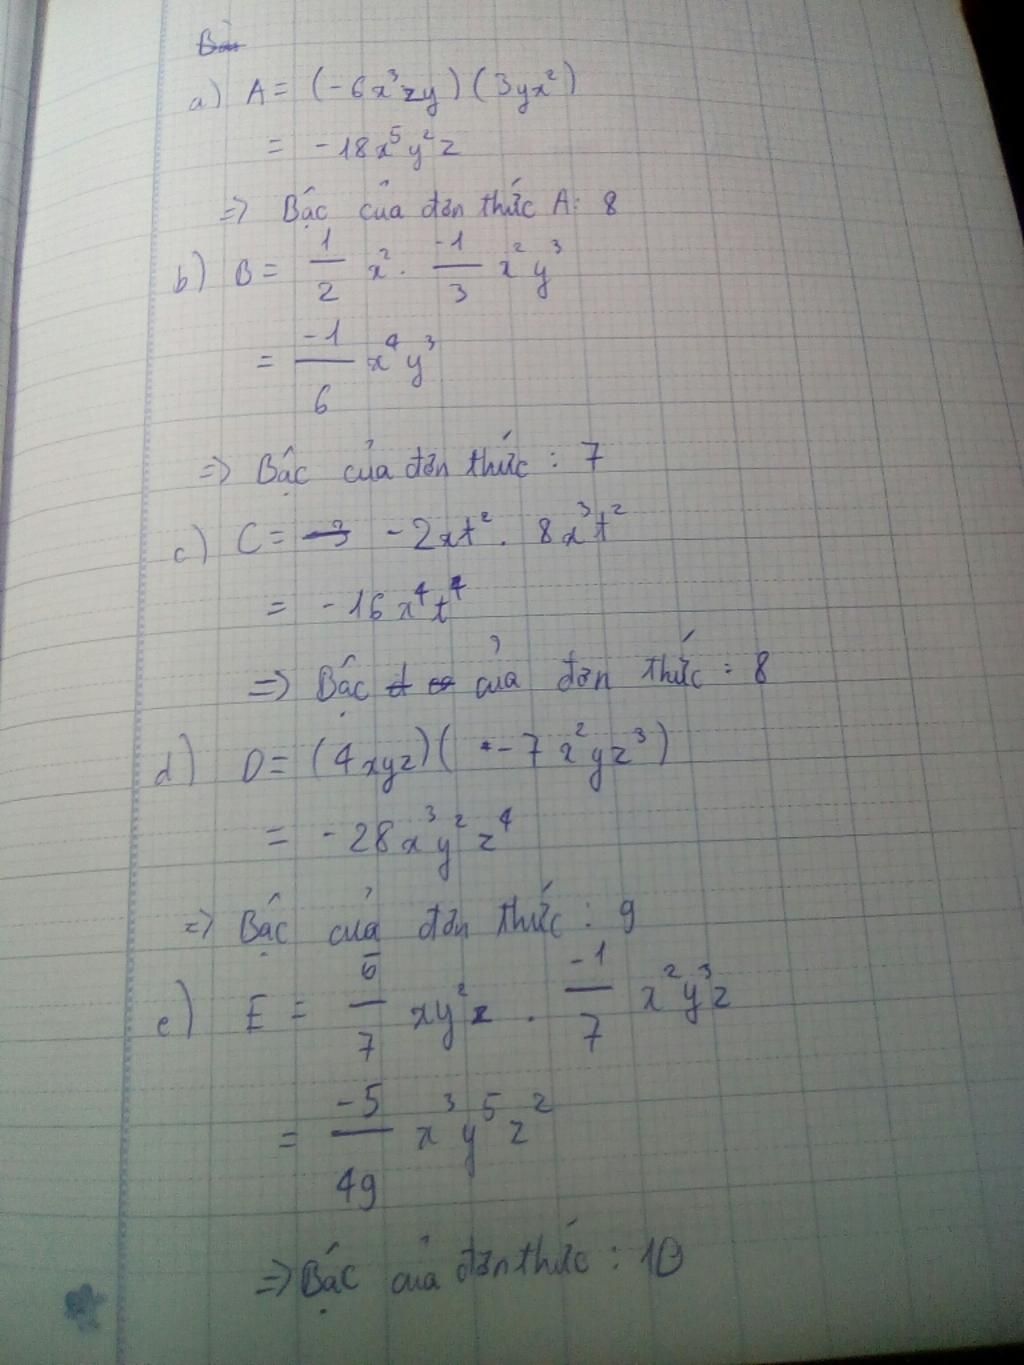 Bài
a) A = (-6x³zy)(3yx²)
= -18x⁵y²z
=> Bậc của đơn thức A: 8
b) B = 1/2 x² . -1/3 x²y³
= -1/6 x⁴y³
=> Bậc của đơn thức : 7
c) C = -3 -2xt² . 8x³t²
= -16x⁴t⁴
=> Bậc đ của đơn thức : 8
d) D = (4xyz)(-7x²yz³)
= -28x³y²z⁴
=> Bậc của đơn thức : 9
e) E = 5/7 xy²z . -1/7 x²y³z
= -5/49 x³y⁵z²
=> Bậc của đơn thức : 10